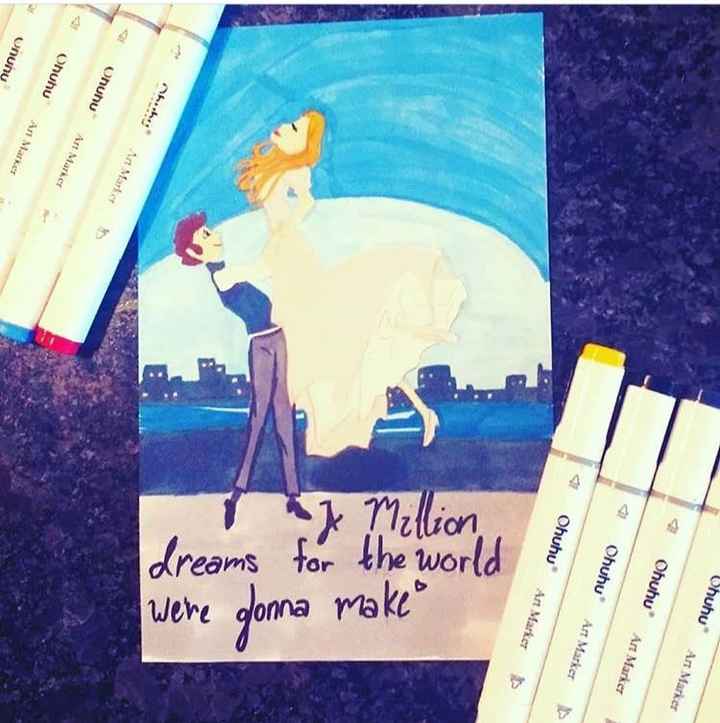 Ohuhu®
Art Marker
Ohuhu®
Art Marker
Ohuhu®
Art Marker
Ohuhu®
Art Marker
A Million
dreams for the world
we're gonna make
Ohuhu®
Art Marker
Ohuhu®
Art Marker
Ohuhu®
Art Marker
Ohuhu®
Art Marker